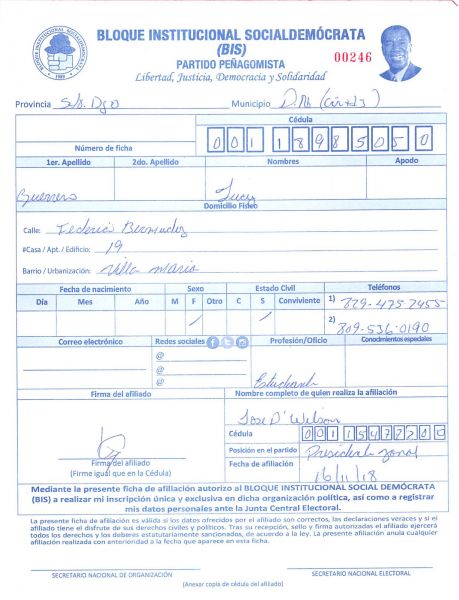 BLOQUE INSTITUCIONAL SOCIALDEMÓCRATA
(BIS)
PARTIDO PEÑAGOMISTA
Libertad, Justicia, Democracia y Solidaridad
00246
Provincia Sto. Dgo Municipio D.N.
Cédula
Número de ficha
001 1898505 0
1er. Apellido 2do. Apellido Nombres Apodo
Guerrero Lucy
Domicilio Físico
Calle: Federico Bermudez
#Casa / Apt. / Edificio: 19
Barrio / Urbanización: Villa Maria
Fecha de nacimiento Sexo Estado Civil Teléfonos
Día Mes Año M F Otro C S Conviviente 1) 829-475-7455
2) 809-536-0190
Correo electrónico Redes sociales Profesión/Oficio Conocimientos especiales
@
@
@
Estudiante
Firma del afiliado Nombre completo de quien realiza la afiliación
Jose D' Wilson
Cédula 001 1547720
Posición en el partido Presidente zonal
Firma del afiliado
(Firma igual que en la Cédula)
Fecha de afiliación 16/11/18
Mediante la presente ficha de afiliación autorizo al BLOQUE INSTITUCIONAL SOCIAL DEMÓCRATA
(BIS) a realizar mi inscripción única y exclusiva en dicha organización política, así como a registrar
mis datos personales ante la Junta Central Electoral.
La presente ficha de afiliación es válida si los datos ofrecidos por el afiliado son correctos, las declaraciones veraces y si el
afiliado tiene el disfrute de sus derechos civiles y políticos. Tras su recepción, sello y firma autorizadas el afiliado ejercerá
todos los derechos y los deberes estatutariamente sancionados, de acuerdo a la ley. La presente afiliación anula cualquier
afiliación realizada con anterioridad a la fecha que aparece en esta ficha.
SECRETARIO NACIONAL DE ORGANIZACIÓN SECRETARIO NACIONAL ELECTORAL
(Anexar copia de cédula del afiliado)